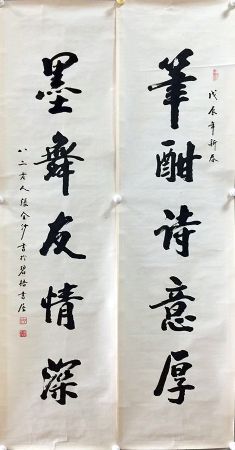 戊辰年新春
筆酣诗意厚
墨舞友情深
八二老人張金沙書於碧梧書屋